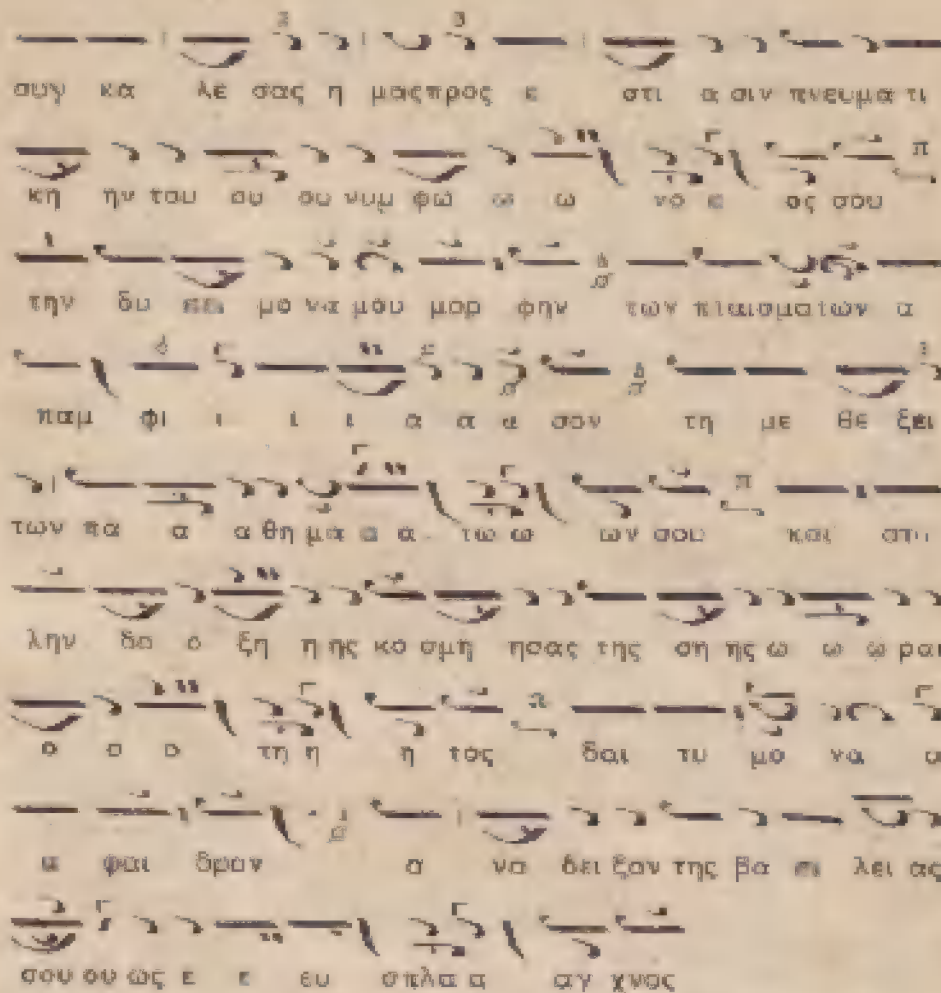 συγ κα λε σας η μας προς ε στι α σιν πνευμα τι
κη ην του ου ου νυμ φω ω ω νο ε ος σου
την δυ ει μο να μου μορ φην των πταισματων α
παμ φι ι ι ι α α α σον τη με θε ξει
των πα α α θη μα α α τω ω ων σου και στο
λην δο ο ξη η ης κο σμη ησας της ση ης ω ω ω ραι
ο ο ο τη η η τος δαι τυ μο να α
α φαι δραν α να δει ξον της βα σι λει ας
σου ου ως ε ε ευ σπλα α αγ χνος